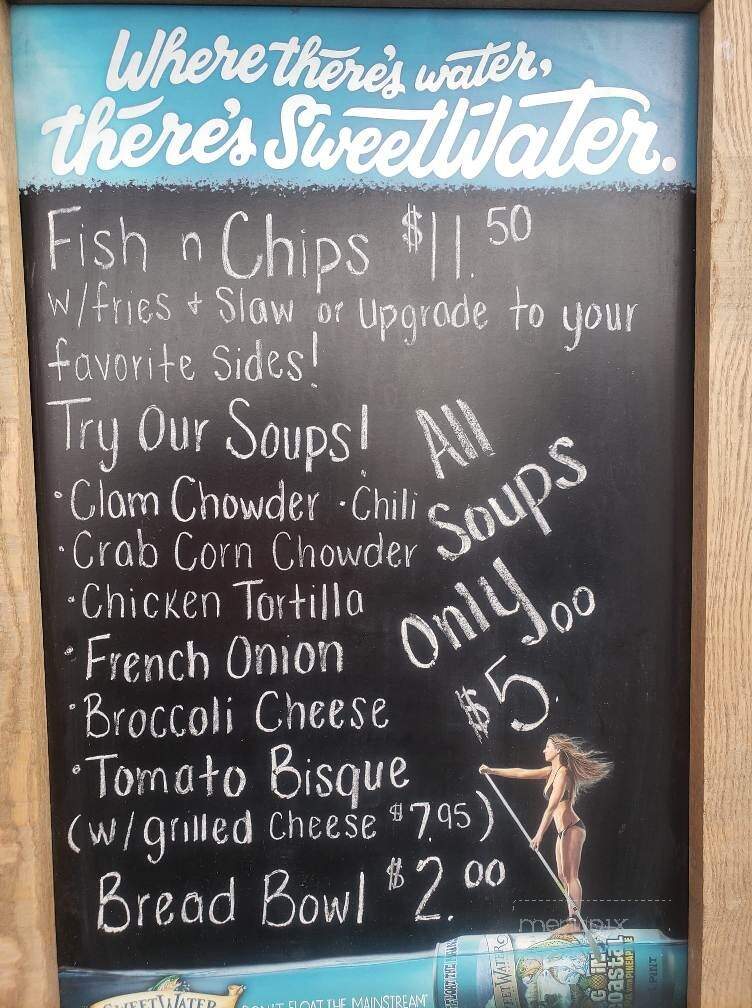 Where there's water,
there's SweetWater.
Fish n Chips $11.50
w/fries + Slaw or Upgrade to your
favorite Sides!
Try Our Soups!
All
Soups
Only
$5.00
·Clam Chowder ·Chili
·Crab Corn Chowder
·Chicken Tortilla
·French Onion
·Broccoli Cheese
·Tomato Bisque
(w/grilled Cheese $7.95)
Bread Bowl $2.00
menupix
SWEETWATER
DON'T FLOAT THE MAINSTREAM
PINEAPPLE
PINT